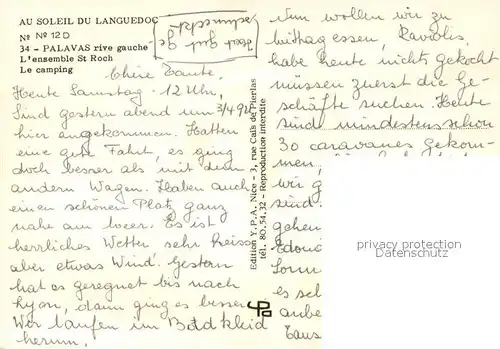 AU SOLEIL DU LANGUEDOC
Nº Nº 12 D
34 - PALAVAS rive gauche
L'ensemble St Roch
Le camping
Hat gut ge
schmeckt
Chère Tante,
Heute Samstag 12 Uhr,
Sind gestern abend um 3/4 9 Uhr
hier angekommen. Hatten
eine gute Fahrt, es ging
doch besser als mit dem
andern Wagen. Haben auch
einen schönen Platz ganz
nahe am Meer. Es ist
herrliches Wetter sehr heiss
aber etwas Wind. Gestern
hat es geregnet bis nach
Lyon, dann ging es besser
Wir laufen im Badkleid
herum.
Edition Y.P.A. Nice - 3, rue Caïs de Pierlas
tél: 80.54.32 - Reproduction interdite
Nun wollen wir zu
mittag essen, Raviolis,
habe heute nichts gekocht
müssen zuerst die Ge-
schäfte suchen. Heute
sind mindestens schon
30 caravanes gekom-
men,
wir g
sind.
gehen
Edoua
Sonn
es sch
anbe
Taus
privacy protection
Datenschutz